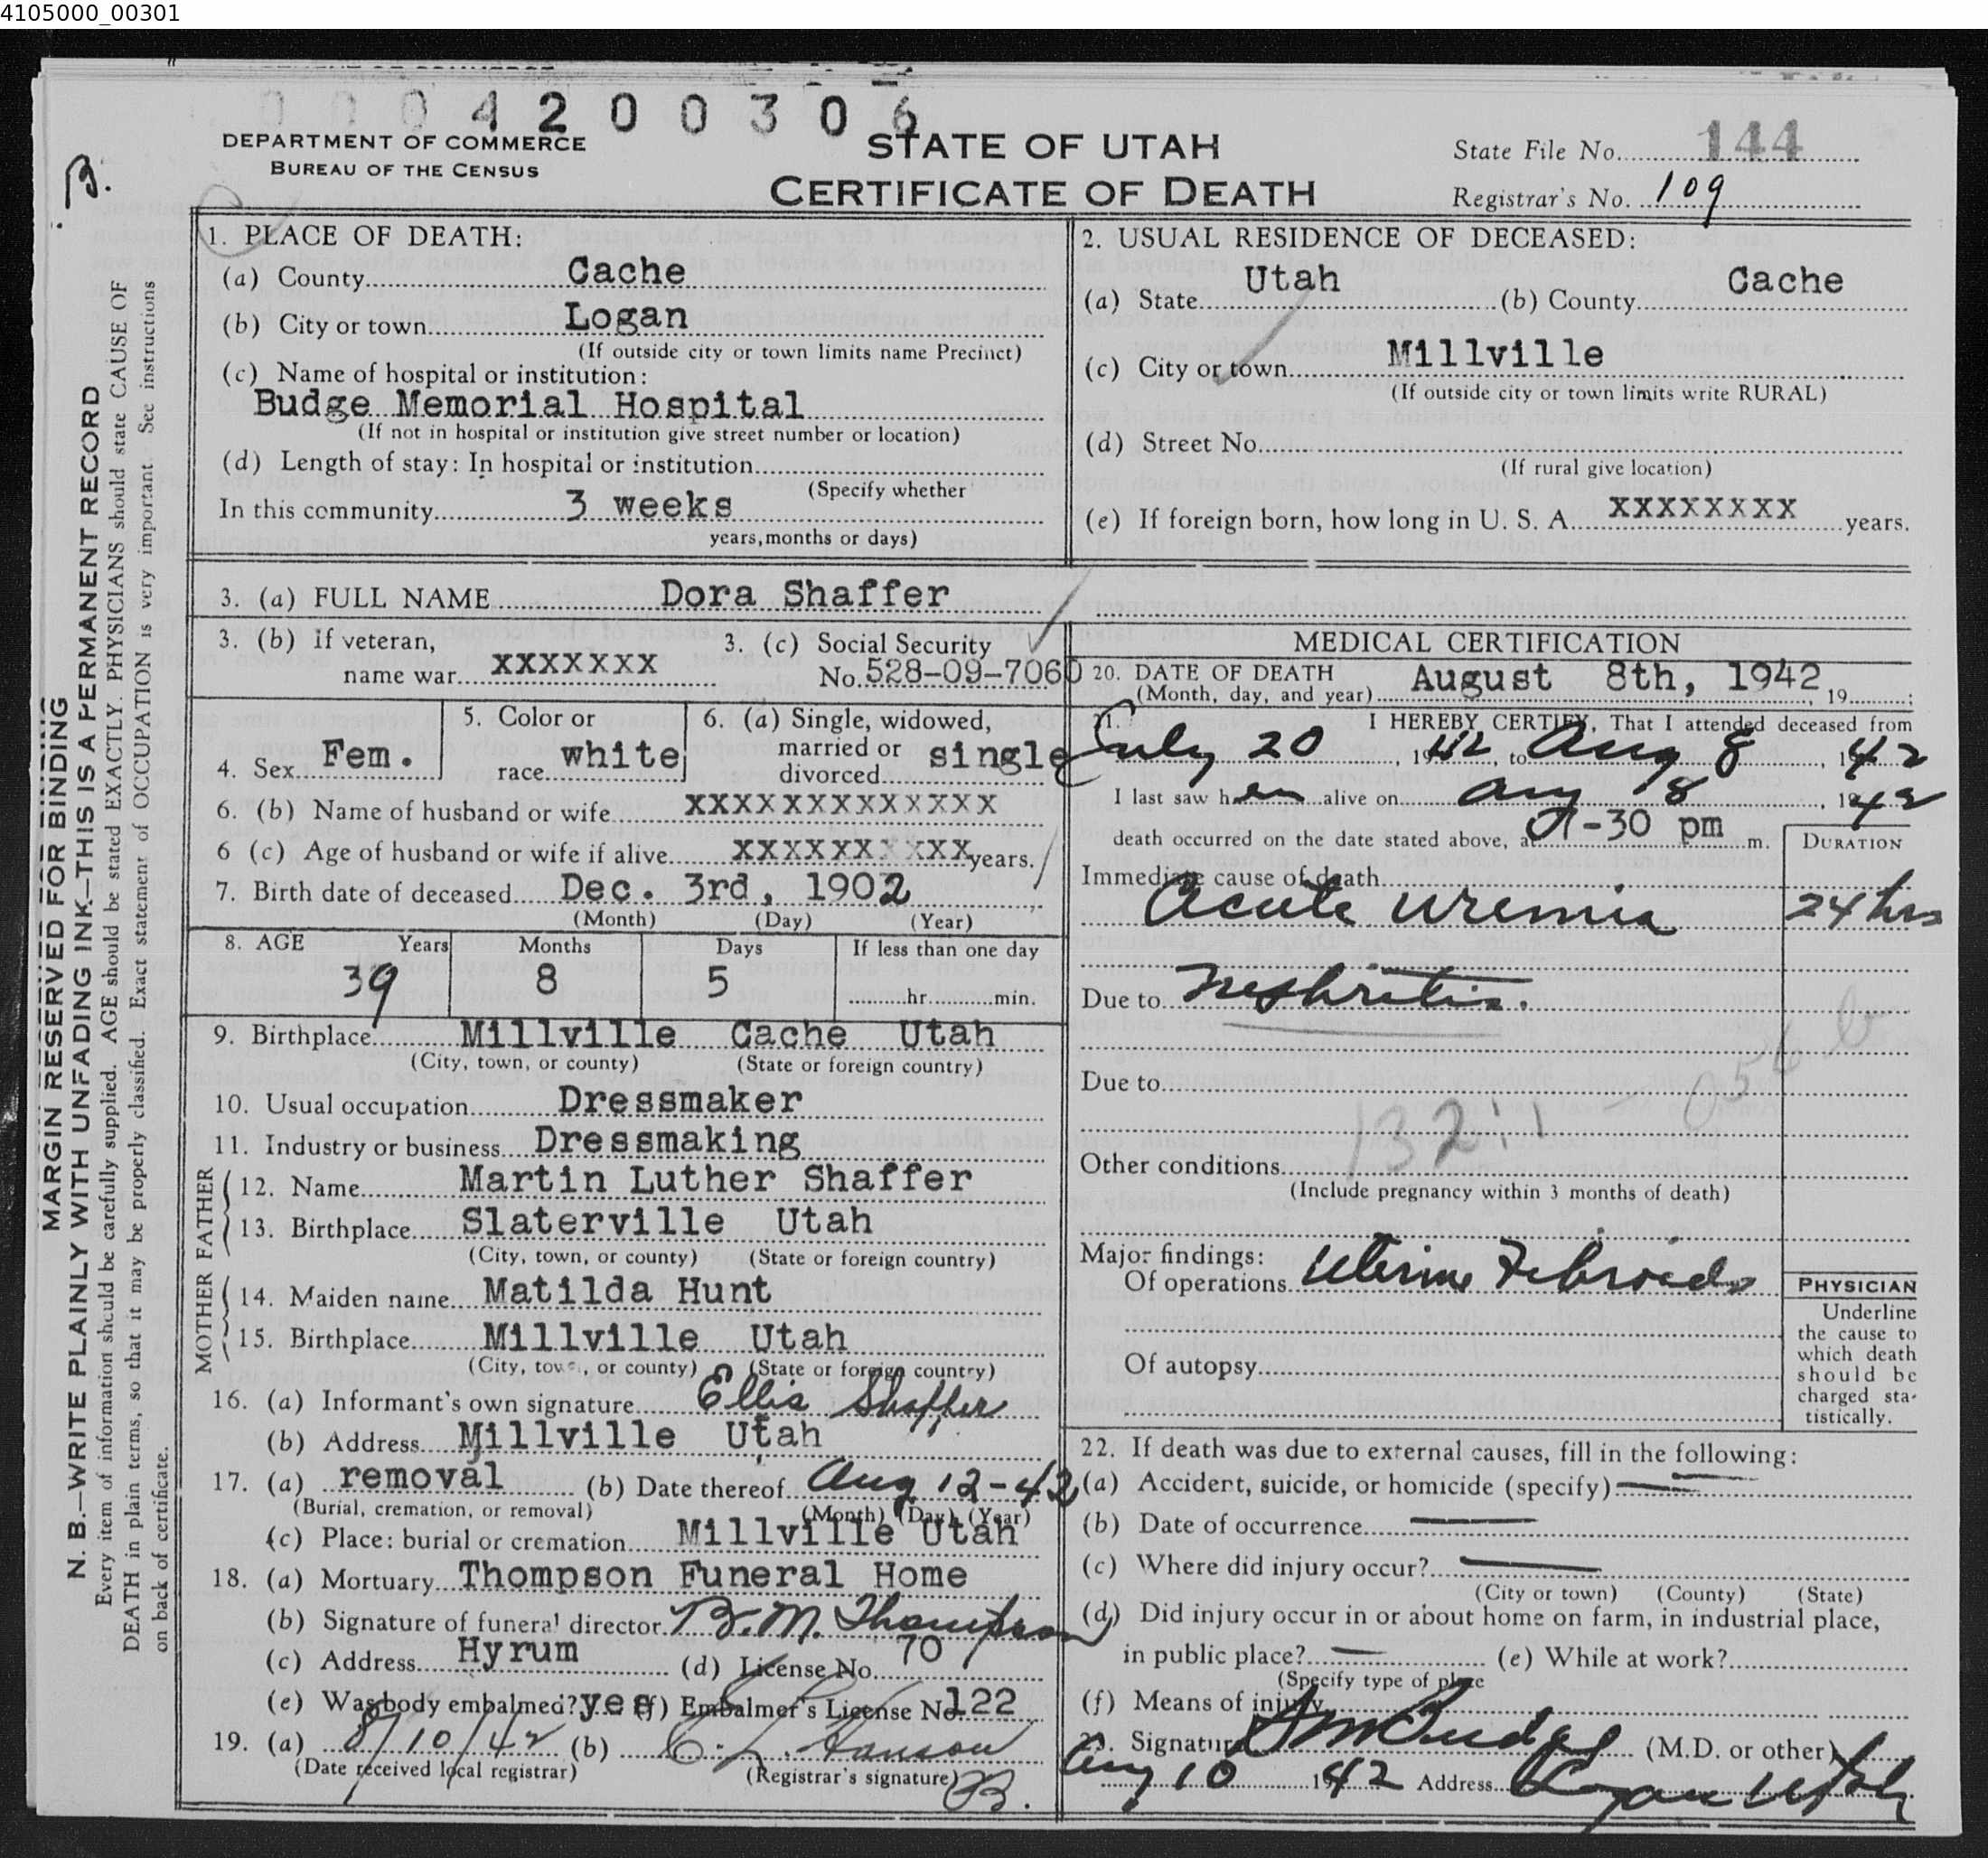 4105000_00301
0004200306
DEPARTMENT OF COMMERCE
BUREAU OF THE CENSUS
STATE OF UTAH
CERTIFICATE OF DEATH
State File No. 144
Registrar's No. 109
B.
MARGIN RESERVED FOR BINDING
N. B.—WRITE PLAINLY WITH UNFADING INK—THIS IS A PERMANENT RECORD
Every item of information should be carefully supplied. AGE should be stated EXACTLY. PHYSICIANS should state CAUSE OF
DEATH in plain terms, so that it may be properly classified. Exact statement of OCCUPATION is very important. See instructions
on back of certificate.
1. PLACE OF DEATH:
(a) County Cache
(b) City or town Logan
(If outside city or town limits name Precinct)
(c) Name of hospital or institution:
Budge Memorial Hospital
(If not in hospital or institution give street number or location)
(d) Length of stay: In hospital or institution
(Specify whether
In this community 3 weeks
years, months or days)
2. USUAL RESIDENCE OF DECEASED:
(a) State Utah (b) County Cache
(c) City or town Millville
(If outside city or town limits write RURAL)
(d) Street No.
(If rural give location)
(e) If foreign born, how long in U. S. A. XXXXXXXX years.
3. (a) FULL NAME Dora Shaffer
3. (b) If veteran, name war XXXXXXX
3. (c) Social Security No. 528-09-7060
4. Sex Fem.
5. Color or race white
6. (a) Single, widowed, married or divorced single
6. (b) Name of husband or wife XXXXXXXXXXXXX
6 (c) Age of husband or wife if alive XXXXXXXXXX years.
7. Birth date of deceased Dec. 3rd, 1902
(Month) (Day) (Year)
8. AGE Years Months Days If less than one day
39 8 5 hr. min.
9. Birthplace Millville Cache Utah
(City, town, or county) (State or foreign country)
10. Usual occupation Dressmaker
11. Industry or business Dressmaking
FATHER
12. Name Martin Luther Shaffer
13. Birthplace Slaterville Utah
(City, town, or county) (State or foreign country)
MOTHER
14. Maiden name Matilda Hunt
15. Birthplace Millville Utah
(City, town, or county) (State or foreign country)
16. (a) Informant's own signature Ellis Shaffer
(b) Address Millville Utah
17. (a) removal (b) Date thereof Aug 12-42
(Burial, cremation, or removal) (Month) (Day) (Year)
(c) Place: burial or cremation Millville Utah
18. (a) Mortuary Thompson Funeral Home
(b) Signature of funeral director B. M. Thompson
(c) Address Hyrum (d) License No. 70
(e) Was body embalmed? yes (f) Embalmer's License No. 122
19. (a) 8/10/42 (b) C. L. Hanson
(Date received local registrar) (Registrar's signature)
B.
MEDICAL CERTIFICATION
20. DATE OF DEATH August 8th, 1942
(Month, day, and year) , 19 ;
21. I HEREBY CERTIFY, That I attended deceased from
July 20, 1942, to Aug 8, 1942
I last saw her alive on Aug 8, 1942
death occurred on the date stated above, at -30 pm m.
DURATION
Immediate cause of death
Acute Uremia 24 hrs
Due to Nephritis.
Due to
132
Other conditions
(Include pregnancy within 3 months of death)
Major findings:
Of operations Uterine Fibroids
Of autopsy
PHYSICIAN
Underline
the cause to
which death
should be
charged sta-
tistically.
22. If death was due to external causes, fill in the following:
(a) Accident, suicide, or homicide (specify) —
(b) Date of occurrence —
(c) Where did injury occur? —
(City or town) (County) (State)
(d) Did injury occur in or about home on farm, in industrial place,
in public place? — (e) While at work?
(Specify type of place
(f) Means of injury
23. Signature S M Budge (M.D. or other)
Aug 10 1942 Address Logan Utah